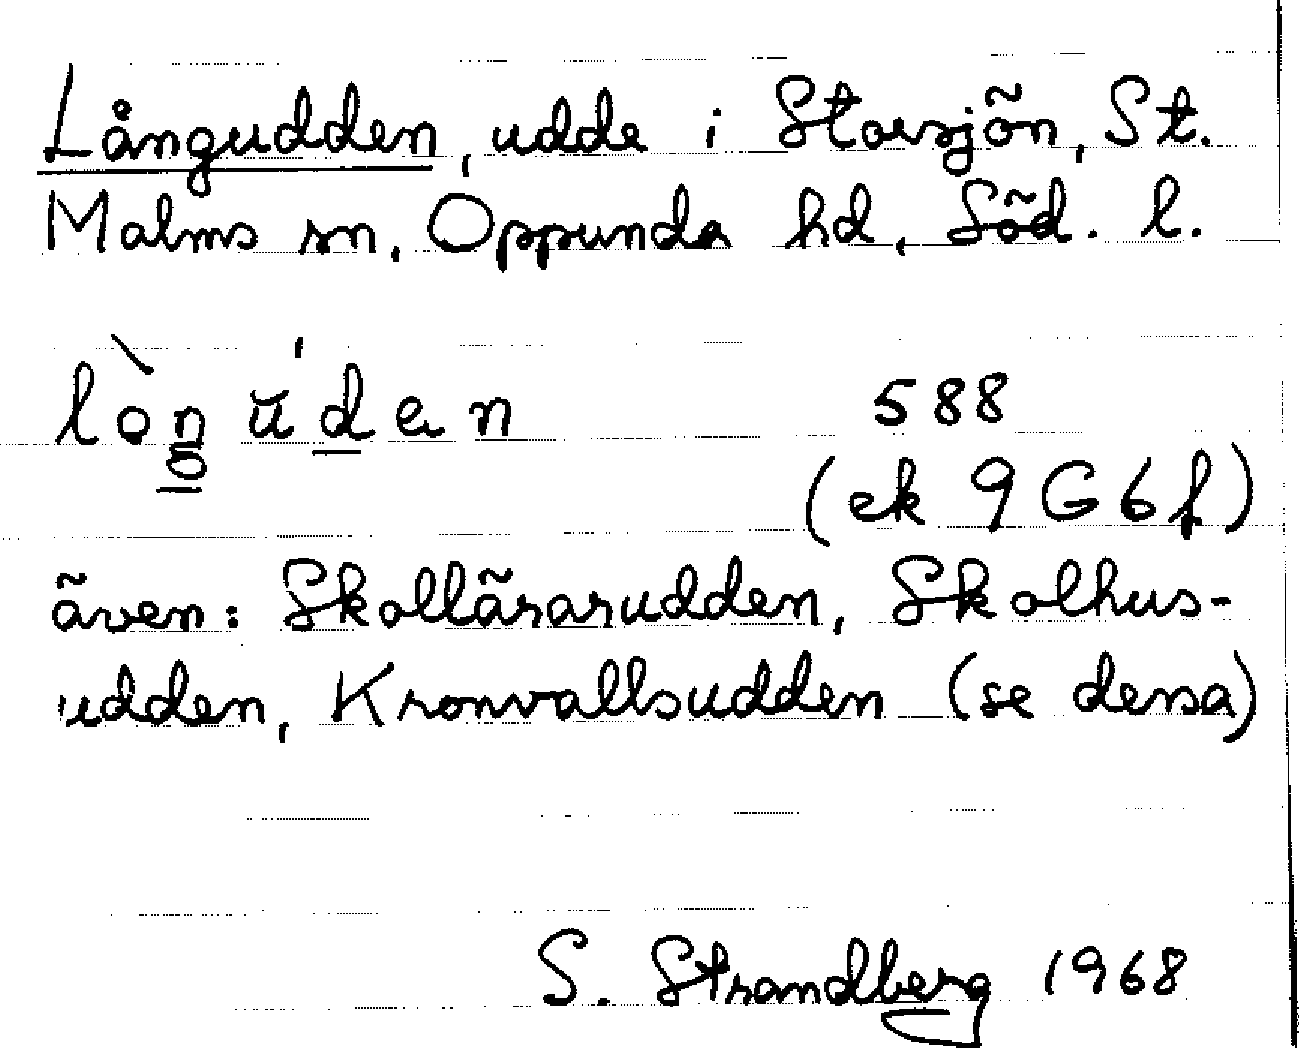 Långudden, udde i Storsjön, St.
Malms sn, Oppunda hd, Söd. l.
lòn̲ ŭ́d̲en 588
(ek 9G6f)
även: Skollärarudden, Skolhus-
udden, Kronvallsudden (se dessa)
S. Strandberg 1968